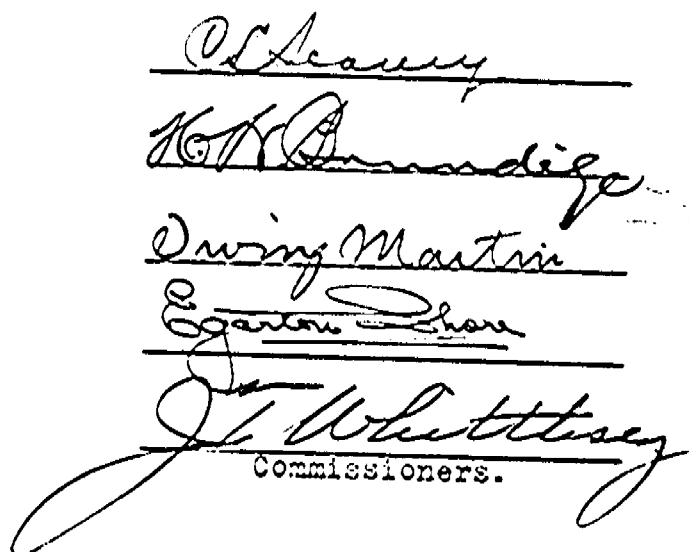 C L Seavey
H W Brundige
Irving Martin
Egerton Shore
J T Whittlesey
Commissioners.